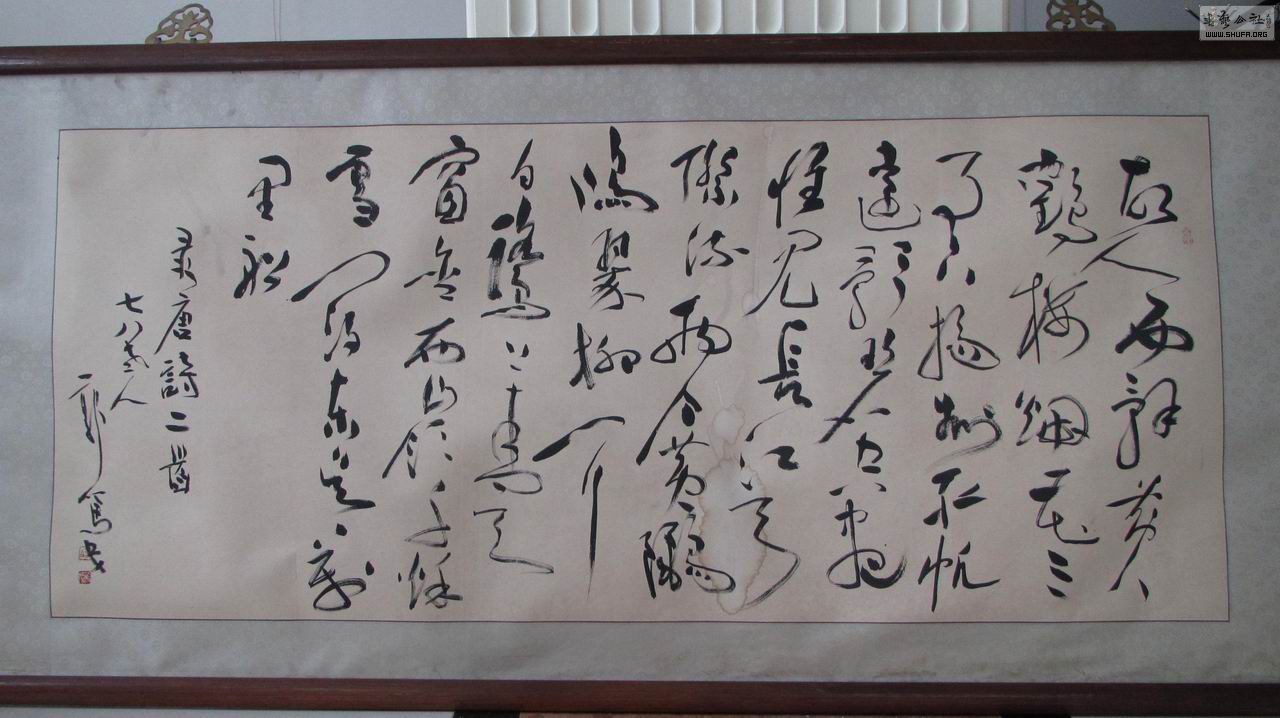 故人西辞黄
鶴楼烟花三
月下揚州孤帆
遠影碧空盡
惟見長江天
際流两个黄鸝
鳴翠柳一行
白鷺上青天
窗含西嶺千秋
雪门泊東吴萬
里船
录唐詩二首
七八人
書艺公社
WWW.SHUFA.ORG